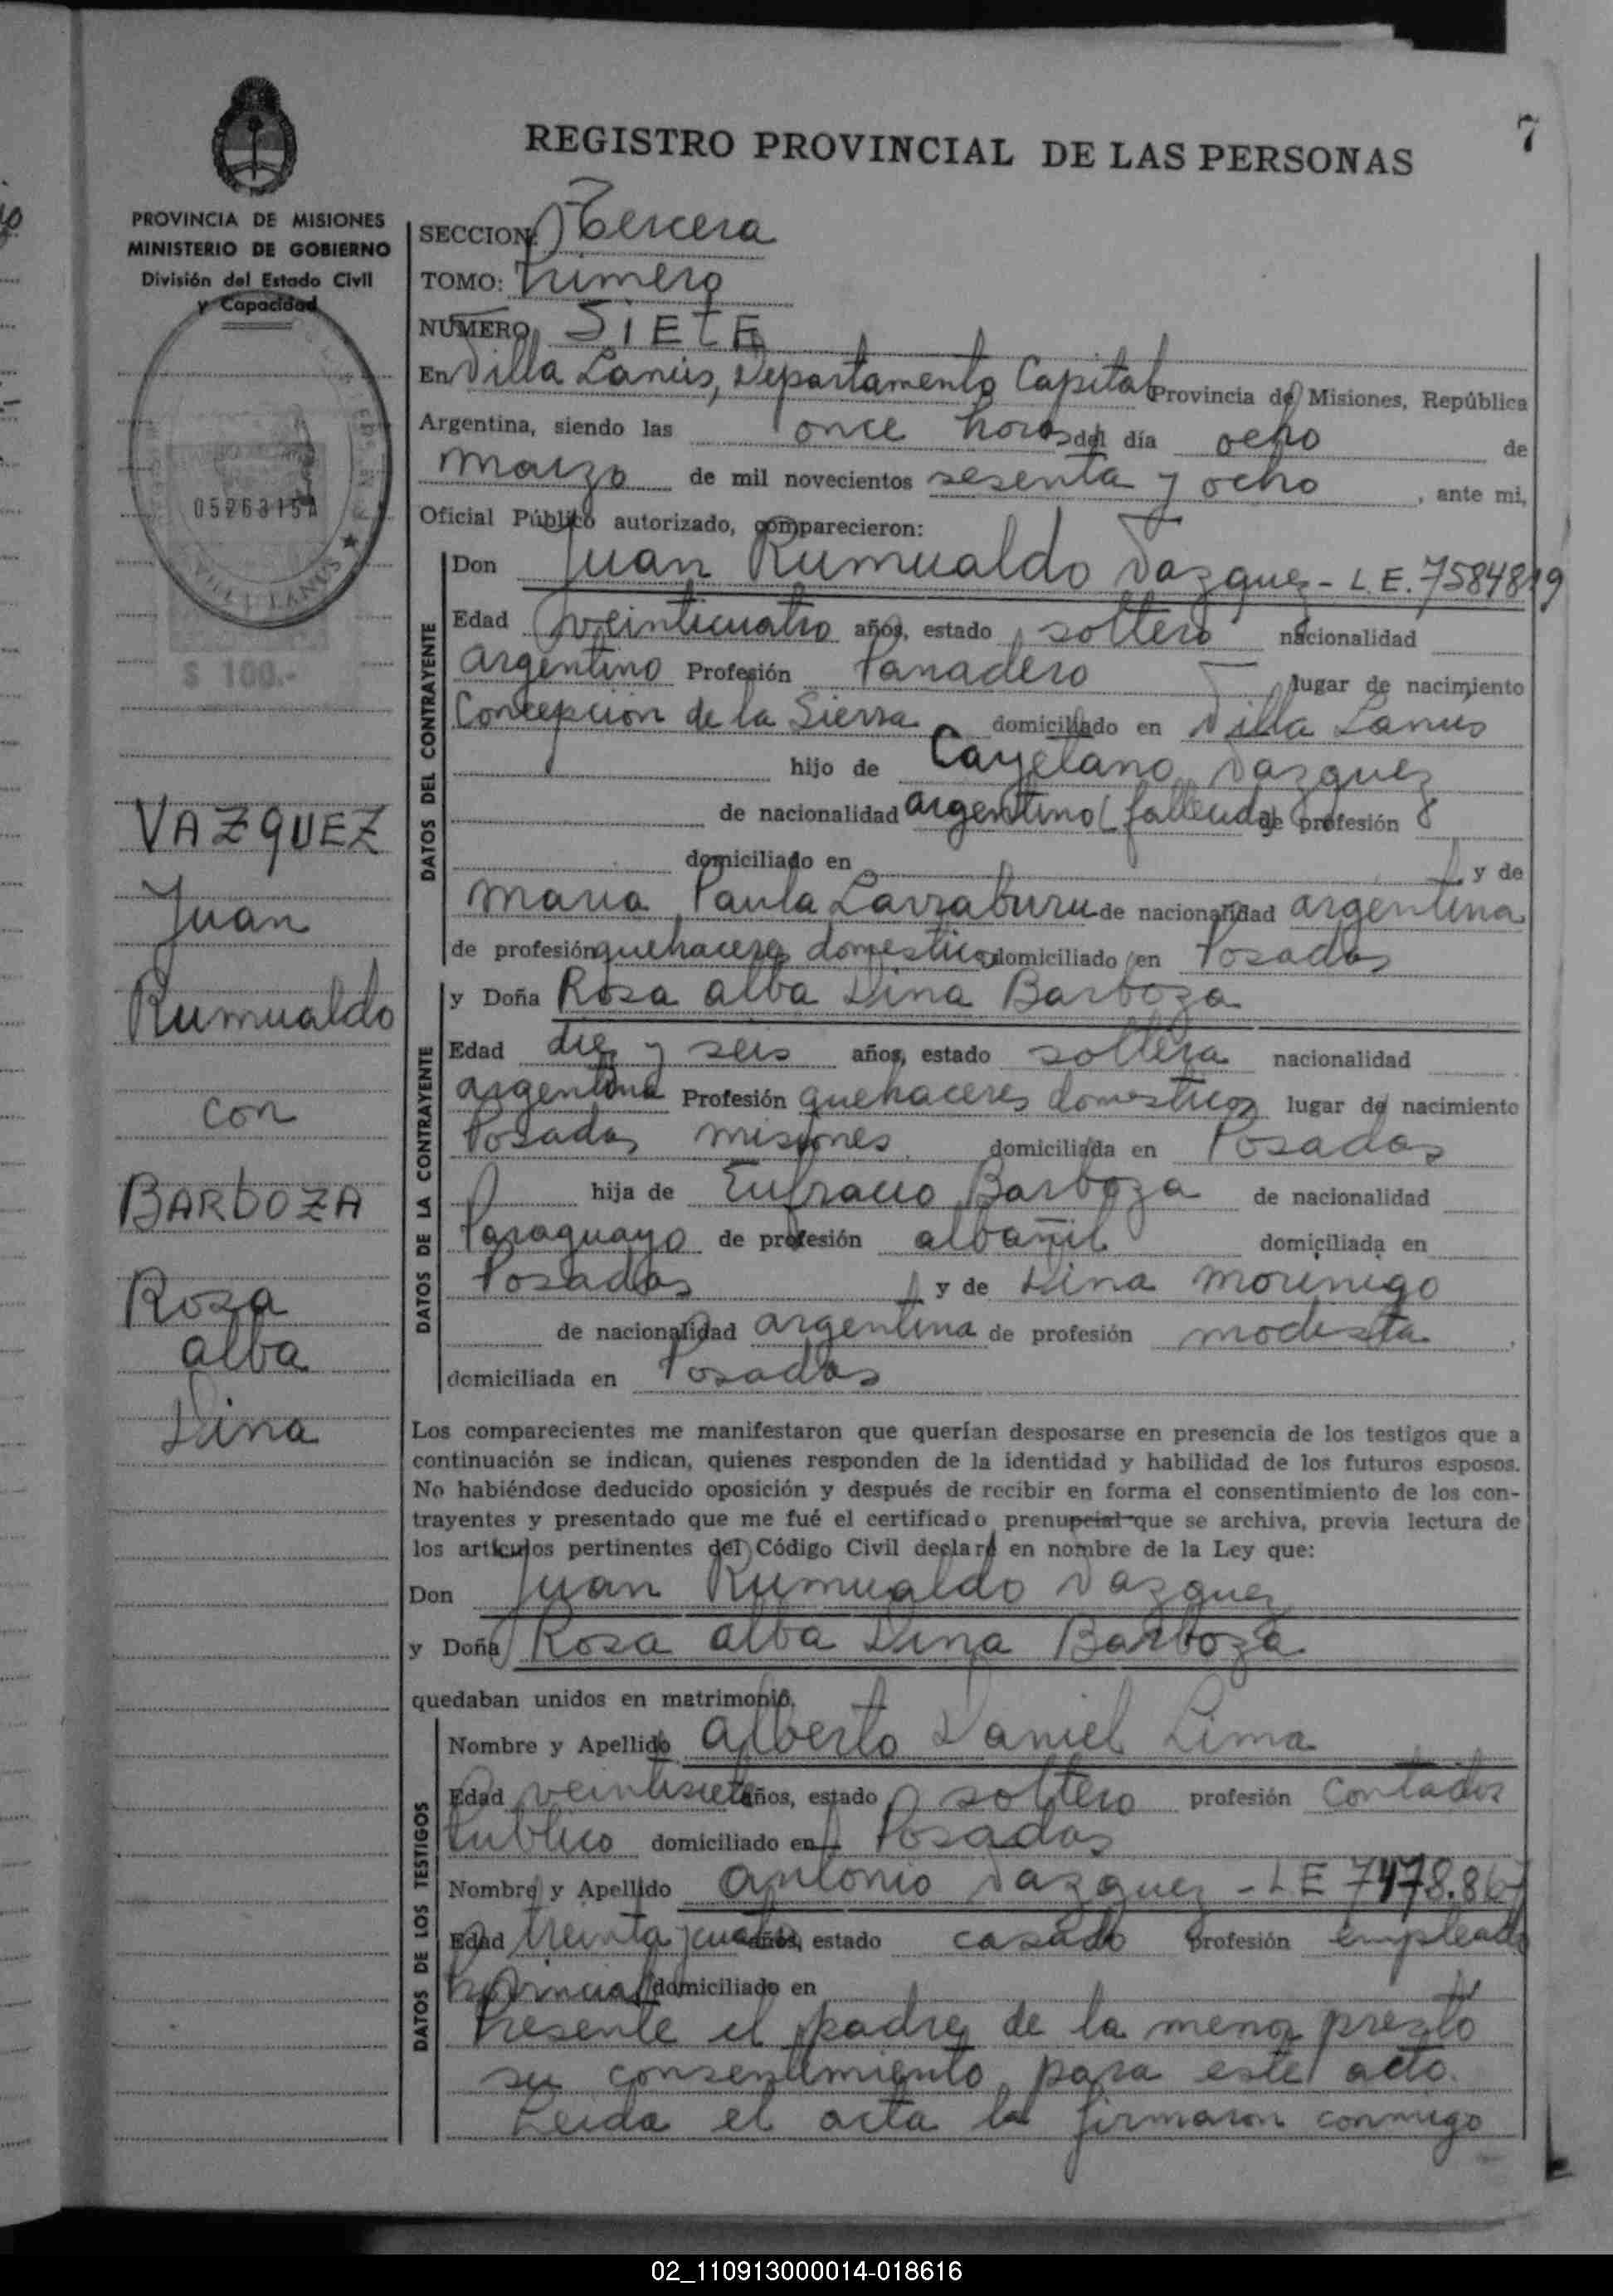 7
REGISTRO PROVINCIAL DE LAS PERSONAS
PROVINCIA DE MISIONES
MINISTERIO DE GOBIERNO
División del Estado Civil
y Capacidad
05263154
VILLA LANUS
$ 100.-
VAZQUEZ
Juan
Rumualdo
con
BARBOZA
Rosa
alba
Dina
SECCION: Tercera
TOMO: Primero
NUMERO SIETE
En Villa Lanús, Departamento Capital Provincia de Misiones, República
Argentina, siendo las once horas del día ocho de
marzo de mil novecientos sesenta y ocho, ante mi,
Oficial Público autorizado, comparecieron:
DATOS DEL CONTRAYENTE
Don Juan Rumualdo Vazquez - L.E. 7584819
Edad veinticuatro años, estado soltero nacionalidad
argentino Profesión Panadero lugar de nacimiento
Concepcion de la Sierra domiciliado en Villa Lanús
hijo de Cayetano Vazquez
de nacionalidad argentino (fallecido) de profesión
domiciliado en y de
Maria Paula Larraburu de nacionalidad argentina
de profesión quehaceres domesticos domiciliado en Posadas
DATOS DE LA CONTRAYENTE
y Doña Rosa alba Dina Barboza
Edad diez y seis años, estado soltera nacionalidad
argentina Profesión quehaceres domesticos lugar de nacimiento
Posadas misiones domiciliada en Posadas
hija de Eufracio Barboza de nacionalidad
Paraguayo de profesión albañil domiciliada en
Posadas y de Dina Morinigo
de nacionalidad argentina de profesión modista
domiciliada en Posadas
Los comparecientes me manifestaron que querían desposarse en presencia de los testigos que a
continuación se indican, quienes responden de la identidad y habilidad de los futuros esposos.
No habiéndose deducido oposición y después de recibir en forma el consentimiento de los con-
trayentes y presentado que me fué el certificado prenupcial que se archiva, previa lectura de
los artículos pertinentes del Código Civil declaré en nombre de la Ley que:
Don Juan Rumualdo Vazquez
y Doña Rosa alba Dina Barboza
quedaban unidos en matrimonio.
DATOS DE LOS TESTIGOS
Nombre y Apellido Alberto Daniel Lima
Edad veintisiete años, estado soltero profesión Contador
Publico domiciliado en Posadas
Nombre y Apellido Antonio Vazquez - LE 7478.867
Edad treinta y cuatro años, estado casado profesión empleado
Provincial domiciliado en
Presente el padre de la menor prestó
su consentimiento para este acto.
Leida el acta la firmaron conmigo
02_110913000014-018616